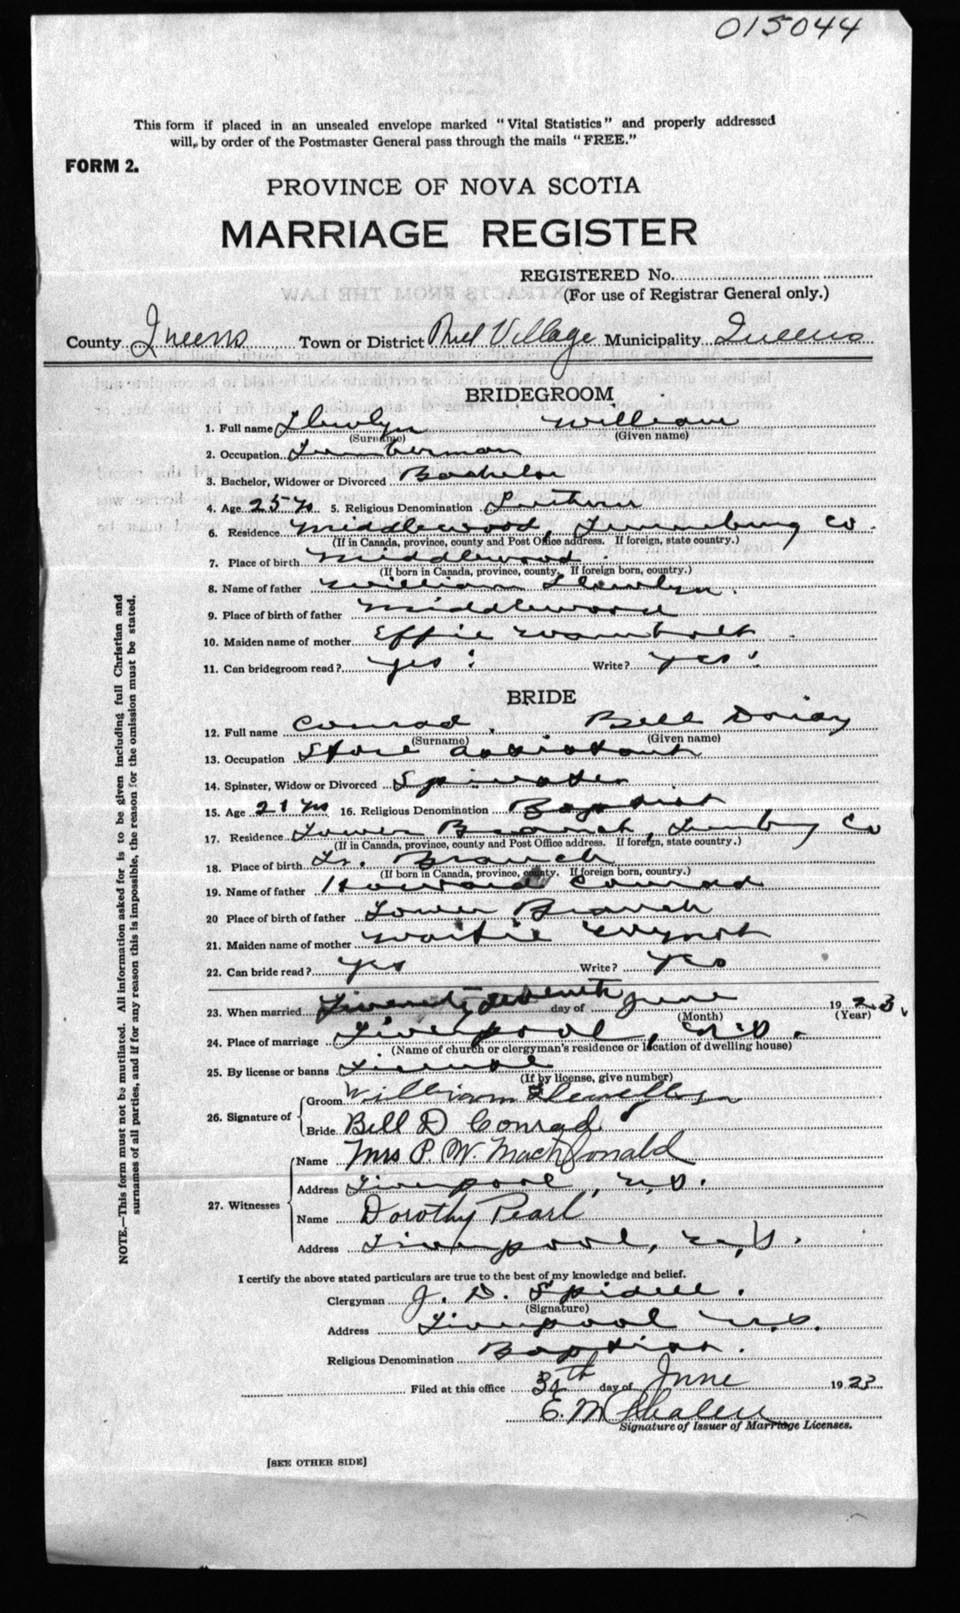 015044
This form if placed in an unsealed envelope marked "Vital Statistics" and properly addressed
will, by order of the Postmaster General pass through the mails "FREE."
FORM 2.
PROVINCE OF NOVA SCOTIA
MARRIAGE REGISTER
REGISTERED No.
(For use of Registrar General only.)
County Queens Town or District Port Village Municipality Queens
BRIDEGROOM
1. Full name Llewlyn William
(Surname) (Given name)
2. Occupation Lumberman
3. Bachelor, Widower or Divorced Bachelor
4. Age 25 yrs 5. Religious Denomination Luthern
6. Residence Middlewood, Lunenburg Co.
(If in Canada, province, county and Post Office address. If foreign, state country.)
7. Place of birth Middlewood
(If born in Canada, province, county, If foreign born, country.)
8. Name of father William Llewlyn.
9. Place of birth of father Middlewood
10. Maiden name of mother Effie Wambolt
11. Can bridegroom read? yes. Write? yes.
BRIDE
12. Full name Conrad, Bell
(Surname) (Given name)
13. Occupation Store assistant
14. Spinster, Widow or Divorced Spinster
15. Age 21 yrs 16. Religious Denomination Baptist
17. Residence Lower Branch, Co
(If in Canada, province, county and Post Office address. If foreign, state country.)
18. Place of birth Lr. Branch
(If born in Canada, province, county. If foreign born, country.)
19. Name of father Howard Conrad
20 Place of birth of father Lower Branch
21. Maiden name of mother
22. Can bride read? yes Write? yes
23. When married Twenty seventh day of June 1923.
(Month) (Year)
24. Place of marriage Liverpool, N.S.
(Name of church or clergyman's residence or location of dwelling house)
25. By license or banns License
(If by license, give number)
26. Signature of Groom William Llewellyn
Bride Bell D Conrad
27. Witnesses Name Mrs P. W. MacDonald
Address Liverpool, N.S.
Name Dorothy Pearl
Address Liverpool, N.S.
I certify the above stated particulars are true to the best of my knowledge and belief.
Clergyman J. D. Spidell.
(Signature)
Address Liverpool N.S.
Religious Denomination Baptist.
Filed at this office 30th day of June 1923
E. M.
Signature of Issuer of Marriage Licenses.
[SEE OTHER SIDE]
NOTE.—This form must not be mutilated. All information asked for is to be given including full Christian and
surnames of all parties, and if for any reason this is impossible, the reason for the omission must be stated.